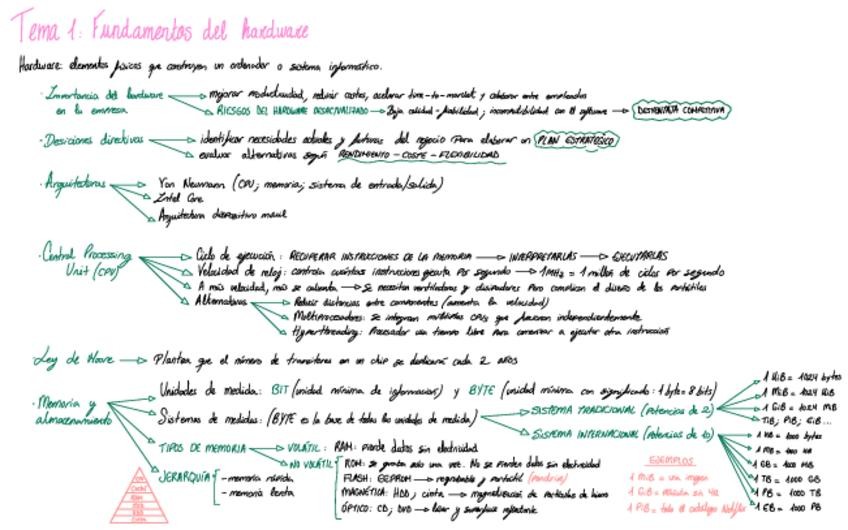 Tema 1: Fundamentos del hardware
Hardware: elementos físicos que construyen un ordenador o sistema informático.
· Importancia del hardware en la empresa
mejorar productividad, reducir costes, acelerar time-to-market y colaborar entre empleados
RIESGOS DEL HARDWARE DESACTUALIZADO → Baja calidad-fiabilidad; incompatibilidad con el software → DESVENTAJA COMPETITIVA
· Desiciones directivas
identificar necesidades actuales y futuras del negocio para elaborar un PLAN ESTRATÉGICO
evaluar alternativas según RENDIMIENTO - COSTE - FLEXIBILIDAD
· Arquitecturas
Von Neumann (CPU; memoria; sistema de entrada/salida)
Intel Core
Arquitectura dispositivo móvil
· Central Processing Unit (CPU)
Ciclo de ejecución: RECUPERAR INSTRUCCIONES DE LA MEMORIA → INTERPRETARLAS → EJECUTARLAS
Velocidad de reloj: controla cuántas instrucciones ejecuta por segundo → 1MHz = 1 millón de ciclos por segundo
A más velocidad, más se calienta → Se necesitan ventiladores y disipadores pero complican el diseño de los portátiles
Alternativas
Reducir distancias entre componentes (aumenta la velocidad)
Multiprocesadores: se integran múltiples CPUs que funcionan independientemente
Hyperthreading: Procesador usa tiempo libre para comenzar a ejecutar otra instrucción
· Ley de Moore → Plantea que el número de transitores en un chip se duplicará cada 2 años
· Memoria y almacenamiento
Unidades de medida: BIT (unidad mínima de informacion) y BYTE (unidad mínima con significado: 1 byte = 8 bits)
Sistemas de medidas: (BYTE es la base de todas las unidades de medida)
SISTEMA TRADICIONAL (Potencias de 2)
1 KiB = 1024 bytes
1 MiB = 1024 KiB
1 GiB = 1024 MB
TiB; PiB; EiB...
SISTEMA INTERNACIONAL (Potencias de 10)
1 KB = 1000 bytes
1 MB = 1000 KB
1 GB = 1000 MB
1 TB = 1000 GB
1 PB = 1000 TB
1 EB = 1000 PB
TIPOS DE MEMORIA
VOLÁTIL: RAM: pierde datos sin electricidad
NO VOLÁTIL
ROM: se graba solo una vez. No se pierden datos sin electricidad
FLASH: EEPROM → regrabable y portátil (Pendrive)
MAGNÉTICA: HDD, cinta → magnetización de partículas de hierro
ÓPTICO: CD; DVD → láser y superficie reflectante
JERARQUÍA
- memoria rápida
- memoria lenta
EJEMPLOS
1 MiB = una imagen
1 GiB = película en 4K
1 PiB = todo el catálogo Netflix